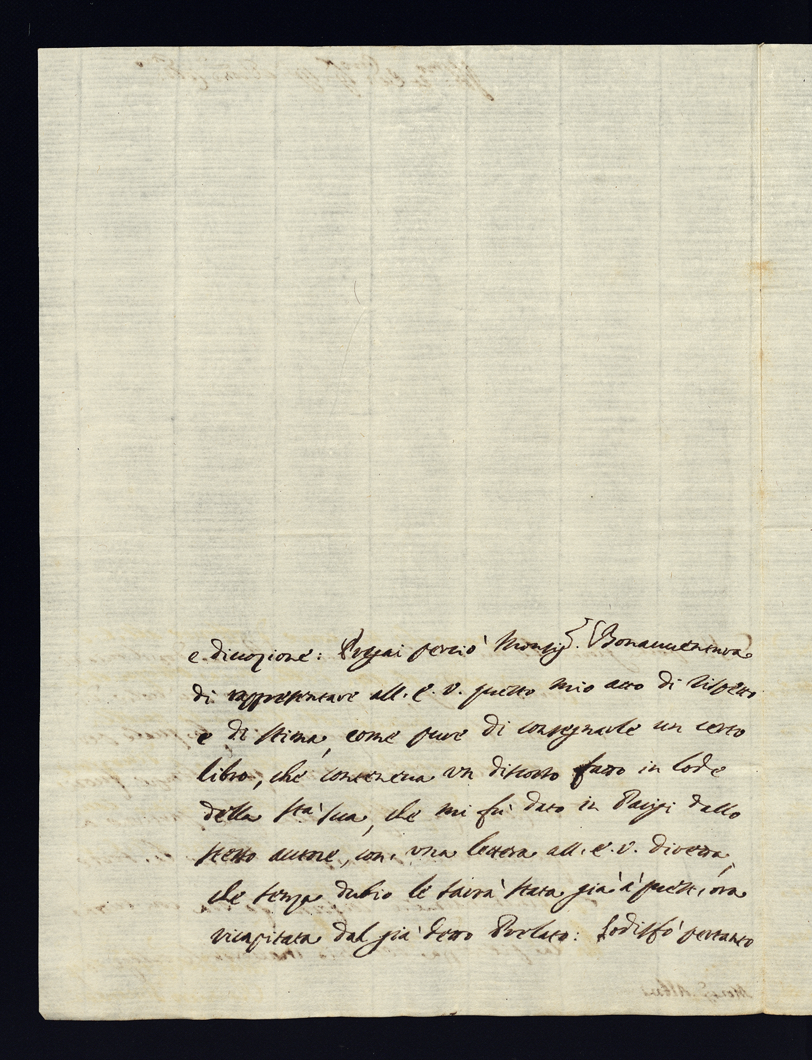 e divozione: Pregai perciò Monsig.r Bonaventura
di rappresentare all. E. V. questo mio atto di rispetto
e di stima, come pure di consegnarle un certo
libro, che conteneva un discorso fatto in lode
della Stà Sua, che mi fù dato in Parigi dallo
stesso autore, con, una lettera all. E. V. diretta,
che senza dubio le sarà stata già à quest, ora
ricapitata dal già detto Prelato: Sodisfò pertanto